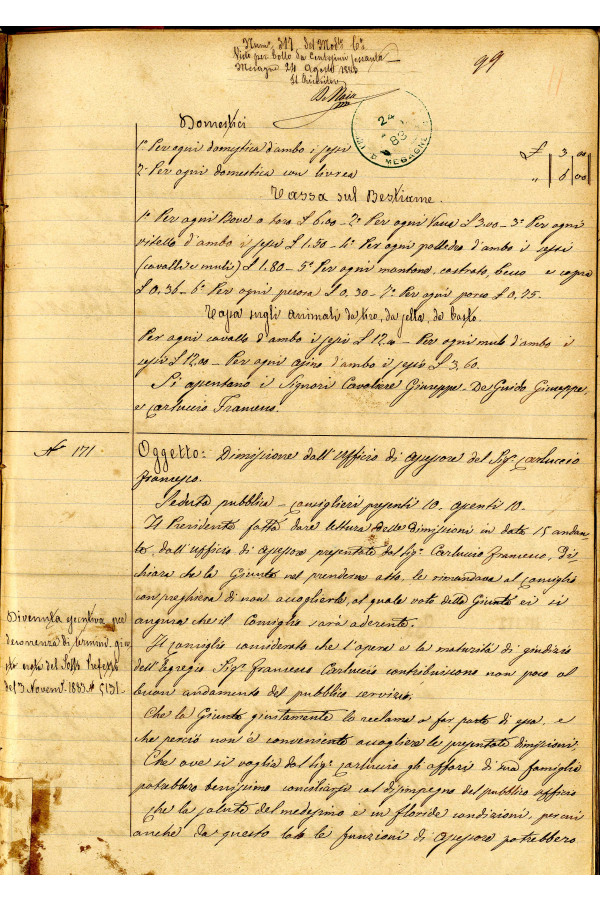 Num. 317 del Mod.lo 6°
Visto per bollo da Centesimi sessanta
Mesagne 24 Agosto 1883
Il Ricevitore
99
24
83
MESAGNE
Domestici
1° Per ogni domestico d'ambo i sessi £ 3,00
2° Per ogni domestico con livrea " 6,00
Tassa sul Bestiame.
1° Per ogni Bove o toro £ 6,00 – 2° Per ogni Vacca £ 3,00 – 3° Per ogni
vitello d'ambo i sessi £ 1.50 – 4° Per ogni polledro d'ambo i sessi
(cavalli e muli) £ 1.80 – 5° Per ogni montone, castrato, becco e capra
£ 0,36 – 6° Per ogni pecora £ 0,30 – 7° Per ogni porco £ 0,75.
Tassa sugli animali da tiro, da sella, da basto.
Per ogni cavallo d'ambo i sessi £ 12,00 – Per ogni mulo d'ambo i
sessi £ 12,00 – Per ogni asino d'ambo i sessi £ 3,60.
Si assentano i Signori Cavaliere Giuseppe – De Guido Giuseppe
e Carluccio Francesco.
N° 171
Oggetto: Dimissione dall'ufficio di assessore del Sig.r Carluccio
Francesco.
Seduta pubblica – Consiglieri presenti 10, assenti 10.
Il Presidente fatta dare lettura delle dimissioni in data 15 andan-
te, dall'ufficio di assessore presentate dal Sig.r Carluccio Francesco, di-
chiara che la Giunta nel prenderne atto, le rimandava al Consiglio
con preghiera di non accoglierle, al quale voto della Giunta ei si
augura che il Consiglio sarà aderente.
Il Consiglio considerato che l'opera e la maturità di giudizio
dell'Egregio Sig.r Francesco Carluccio contribuiscono non poco al
buon andamento del pubblico servizio.
Che la Giunta giustamente lo reclama a far parte di essa, e
che perciò non è conveniente accogliere le presentate dimissioni.
Che ove si voglia dal Sig.r Carluccio gli affari di sua famiglia
potrebbero benissimo conciliarsi col disimpegno del pubblico ufficio
che la salute del medesimo è in floride condizioni, per cui
anche da questo lato le funzioni di assessore potrebbero
Divenuta esecutiva per
decorrenza di termini, giu-
sta nota del Sotto Prefetto
del 3 Novem. 1883 N° 5131.